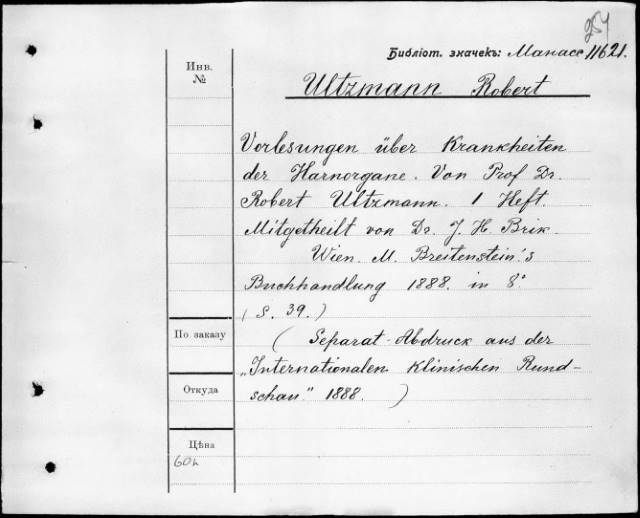 254
Библіот. значекъ: Манасс. 11621.
Инв.
№
Ultzmann Robert
Vorlesungen über Krankheiten
der Harnorgane. Von Prof Dr.
Robert Ultzmann. 1 Heft.
Mitgetheilt von Dr. J. H. Brik.
Wien. M. Breitenstein's
Buchhandlung 1888. in 8°
(S. 39.)
По заказу
( Separat-Abdruck aus der
„Internationalen klinischen Rund-
Откуда
schau" 1888. )
Цѣна
60к